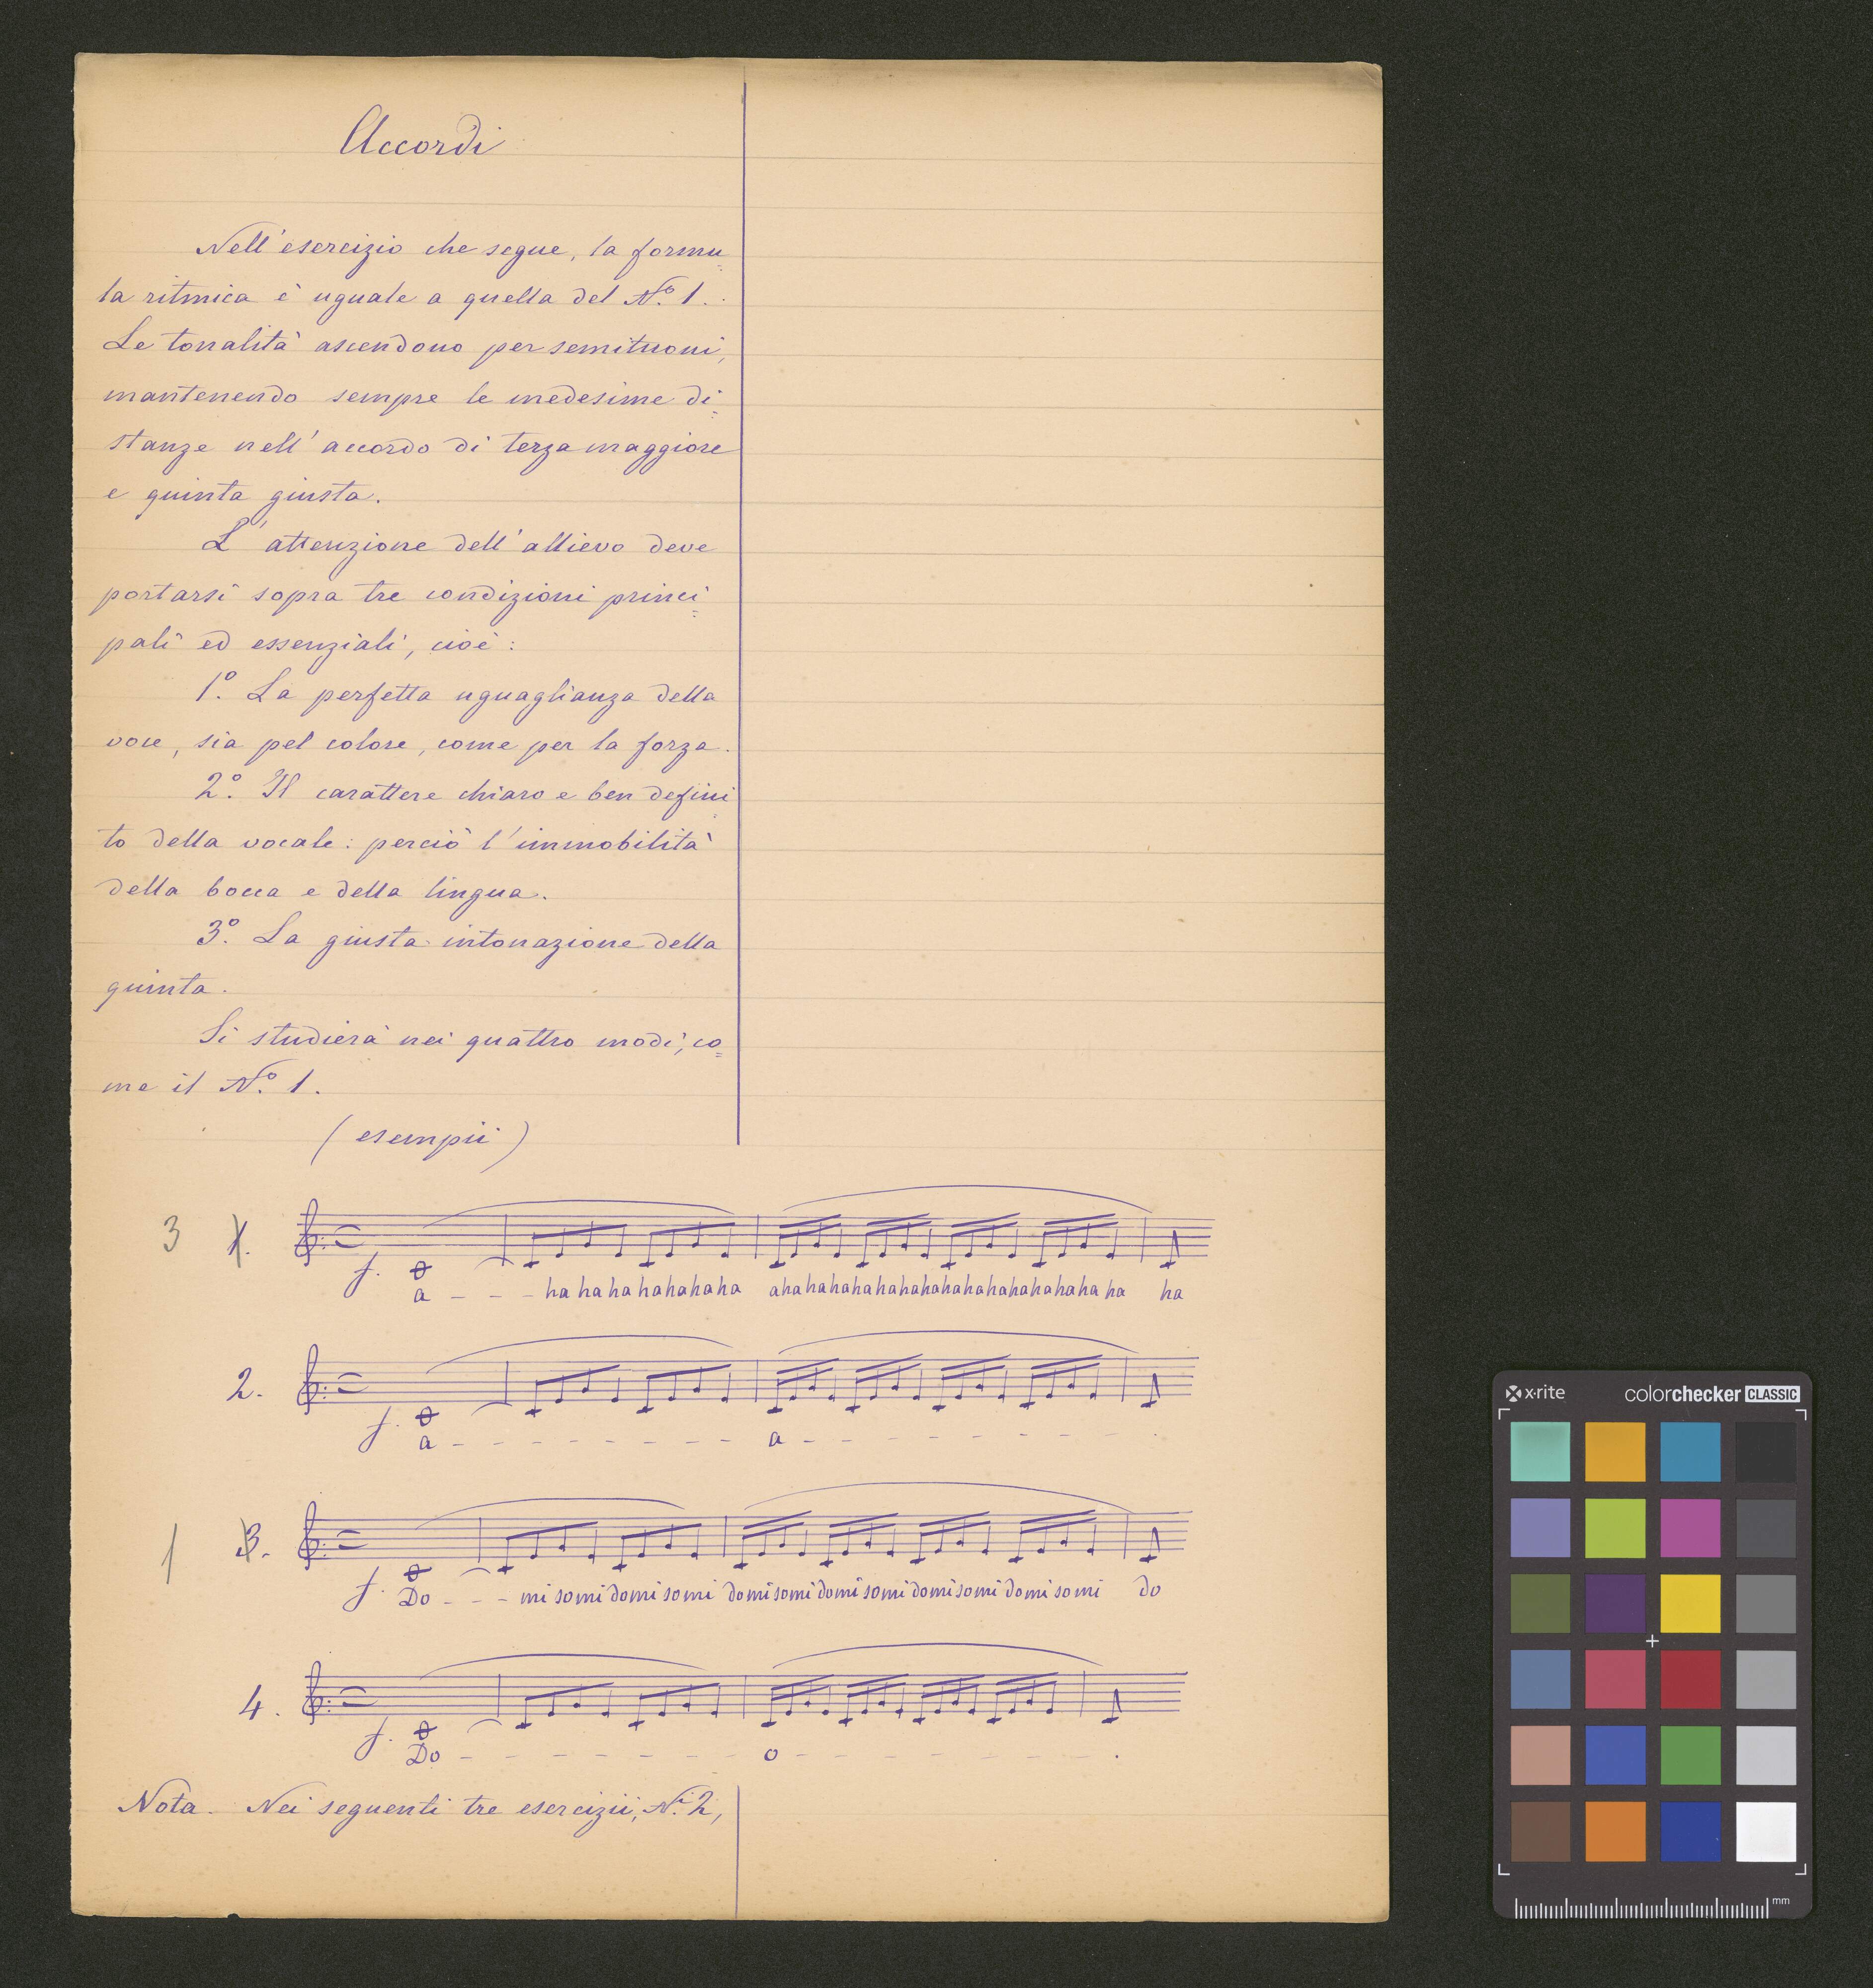 Accordi
Nell'esercizio che segue, la formu=
la ritmica è uguale a quella del No. 1.
Le tonalità ascendono per semituoni,
mantenendo sempre le medesime di=
stanze nell'accordo di terza maggiore
e quinta giusta.
L'attenzione dell'allievo deve
portarsi sopra tre condizioni princi=
pali ed essenziali, cioè:
1o. La perfetta uguaglianza della
voce, sia pel colore, come per la forza.
2o. Il carattere chiaro e ben defini=
to della vocale: perciò l'immobilità
della bocca e della lingua.
3o. La giusta intonazione della
quinta.
Si studierà nei quattro modi, co=
me il No. 1.
(esempii)
3 1.
f.
a - - - ha ha ha ha ha ha ha ahahahahahahahahahahahahahahaha ha
2.
f.
a - - - - - - - - a - - - - - - - -
1 3.
f.
Do - - - mi so mi do mi so mi do mi so mi do mi so mi do mi so mi do mi so mi do
4.
f.
Do - - - - - - - o - - - - - - - .
Nota. Nei seguenti tre esercizii, Ni. 2,
x-rite colorchecker CLASSIC
mm